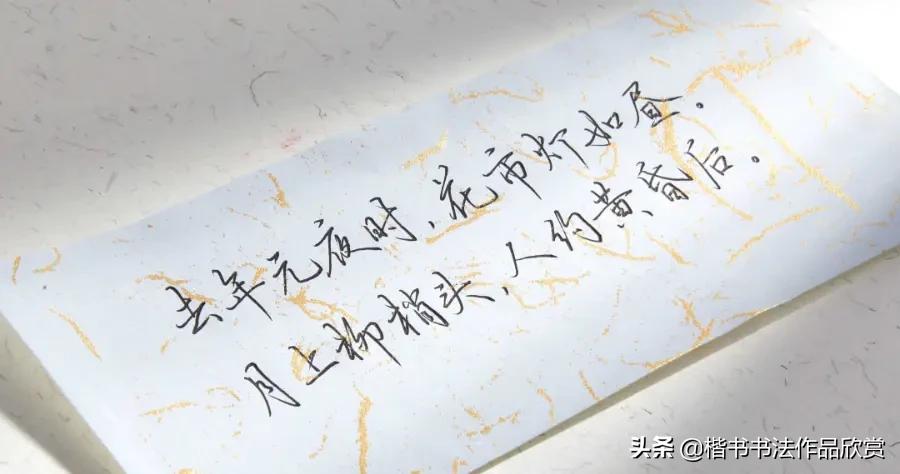 去年元夜时，花市灯如昼。
月上柳梢头，人约黄昏后。
头条 @楷书书法作品欣赏